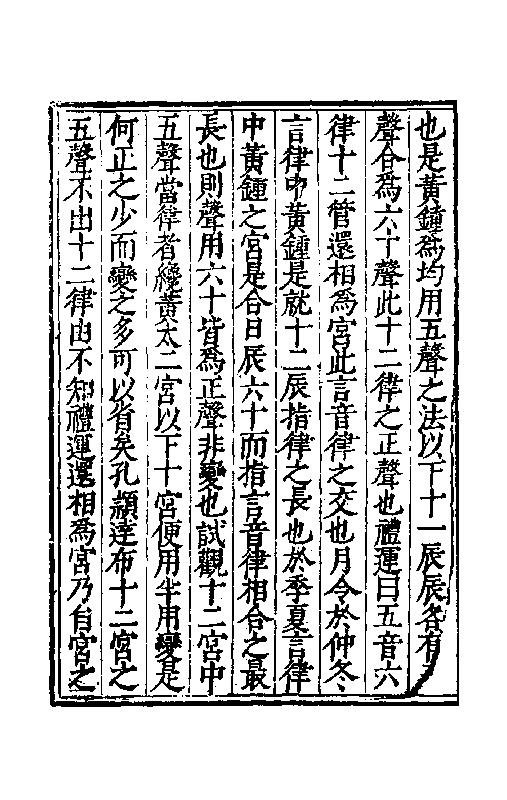 也是黃鐘為均用五聲之法以下十一辰辰各有
聲合為六十聲此十二律之正聲也禮運曰五音六
律十二管還相為宮此言音律之交也月令於仲冬
言律中黃鍾是就十二辰指律之長也於季夏言律
中黃鍾之宮是合日辰六十而指言音律相合之最
長也則聲用六十皆為正聲非變也試觀十二宮中
五聲當律者纔黃太二宮以下十宮便用半用變是
何正之少而變之多可以省矣孔頴逹布十二宮之
五聲不出十二律由不知禮運還相為宮乃自宮之